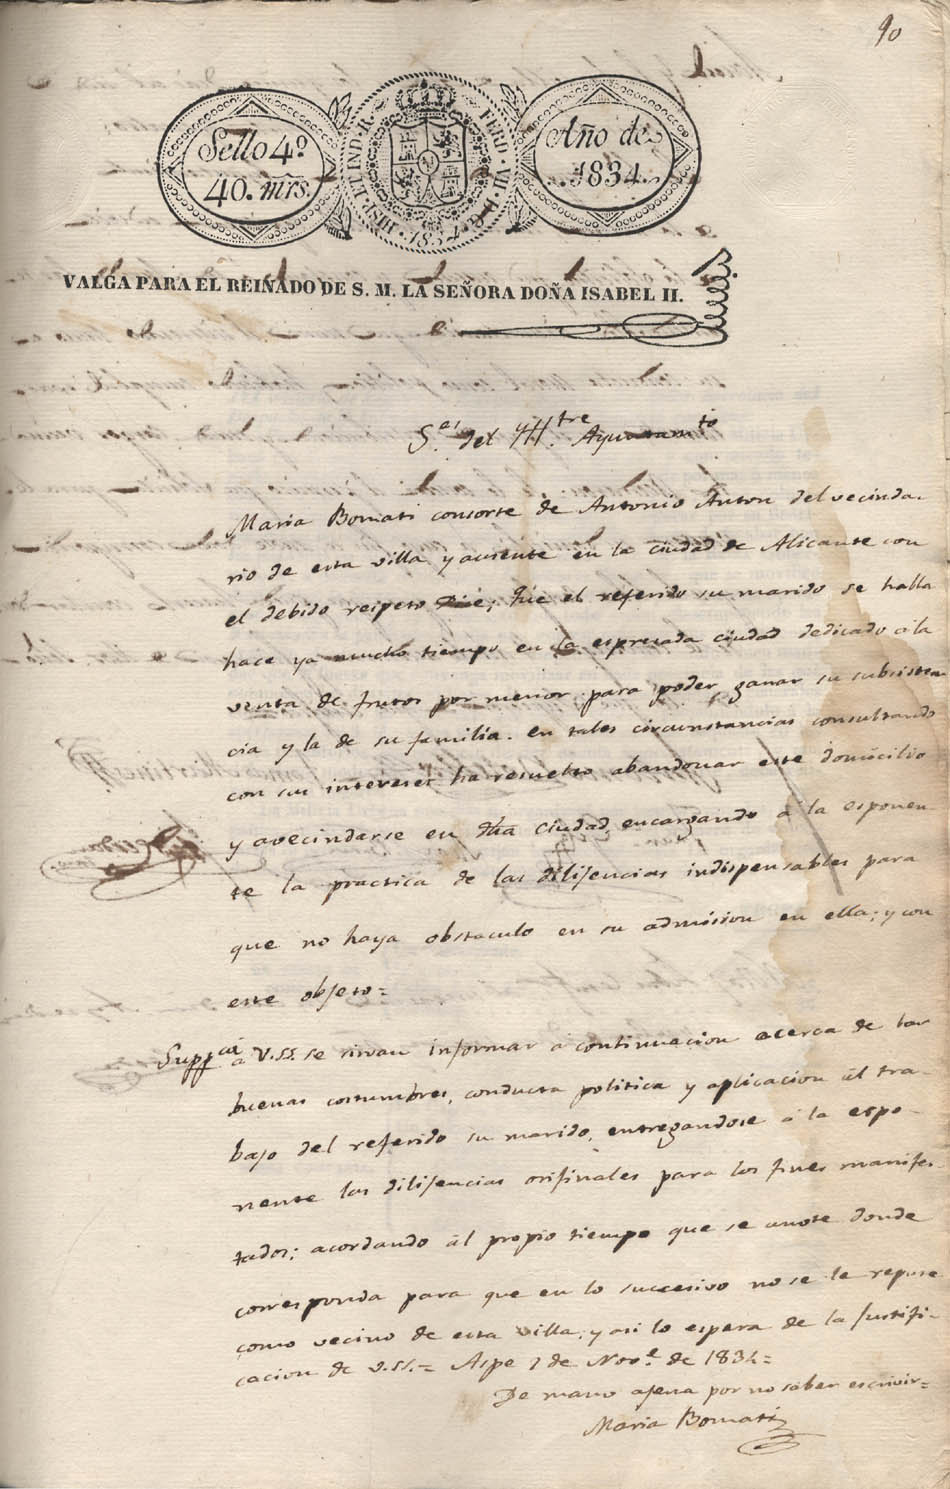 90
Sello 4º
40. mrs.
HISP. ET IND. R.
FERD. VII. D. G.
1834
Año de
1834.
VALGA PARA EL REINADO DE S. M. LA SEÑORA DOÑA ISABEL II.
S.es del Ill.tre Ayuntam.to
Maria Bomati consorte de Antonio Anton del vecinda-
rio de esta villa y ausente en la ciudad de Alicante con
el debido respeto Dice; Que el referido su marido se halla
hace ya mucho tiempo en la espresada ciudad dedicado á la
venta de frutos por menor para poder ganar su subsisten-
cia y la de su familia. en tales circunstancias consultando
con sus intereses ha resuelto abandonar este domicilio
y avecindarse en dha ciudad, encargando á la esponen-
te la practica de las dilijencias indispensables para
que no haya obstaculo en su admision en ella; y con
este objeto=
Supp.ca á V.SS. se sirvan informar á continuacion acerca de las
buenas costumbres, conducta politica y aplicacion al tra-
bajo del referido su marido, entregandose á la espo-
nente las dilijencias orijinales para los fines manifes-
tados; acordando al propio tiempo que se anote donde
corresponda para que en lo succesivo no se le repute
como vecino de esta villa; y asi lo espera de la Justifi-
cacion de V.SS.= Aspe de Nov.e de 1834=
De mano ajena por no saber escrivir=
Maria Bomati